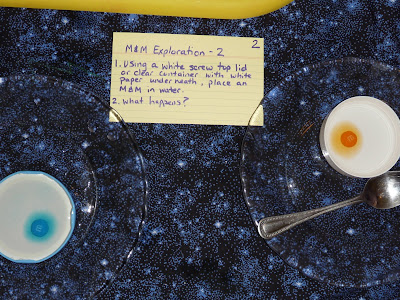 2
M&M Exploration - 2
1. Using a white screw top lid
or clear container with white
paper underneath, place an
M&M in water.
2. What happens?